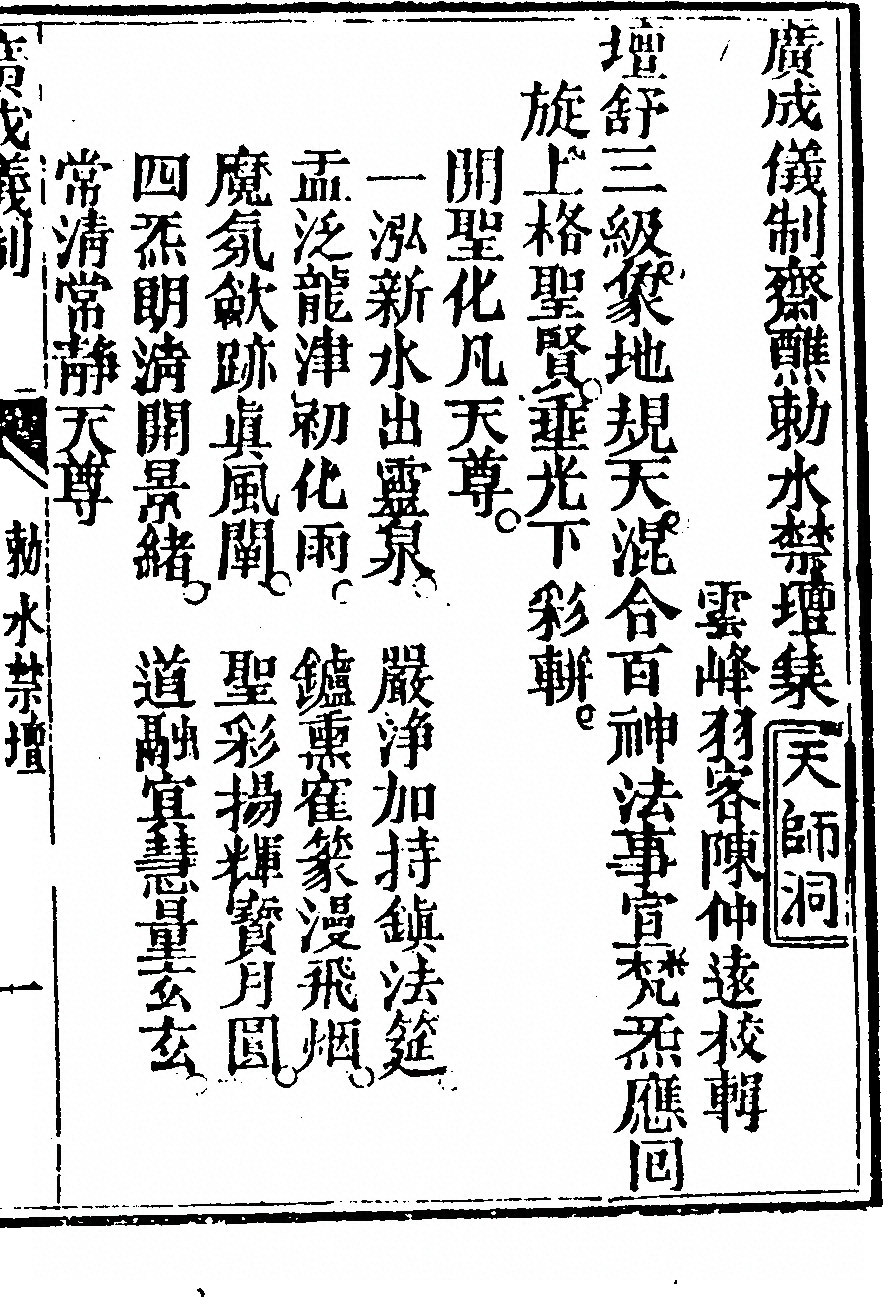 廣成儀制齋醮勅水禁壇集
天師洞
雲峰羽客陳仲遠校輯
壇舒三級象地規天混合百神法事宣梵炁應回
旋上格聖賢垂光下彩軿
開聖化凡天尊
一泓新水出靈泉 嚴淨加持鎮法筵
盂泛龍津初化雨 鑪熏寉篆漫飛烟
魔氛歛跡眞風闡 聖彩揚輝寶月圓
四炁朗淸開景緒 道融宜慧量玄玄
常淸常靜天尊
廣成儀制
勅水禁壇
一